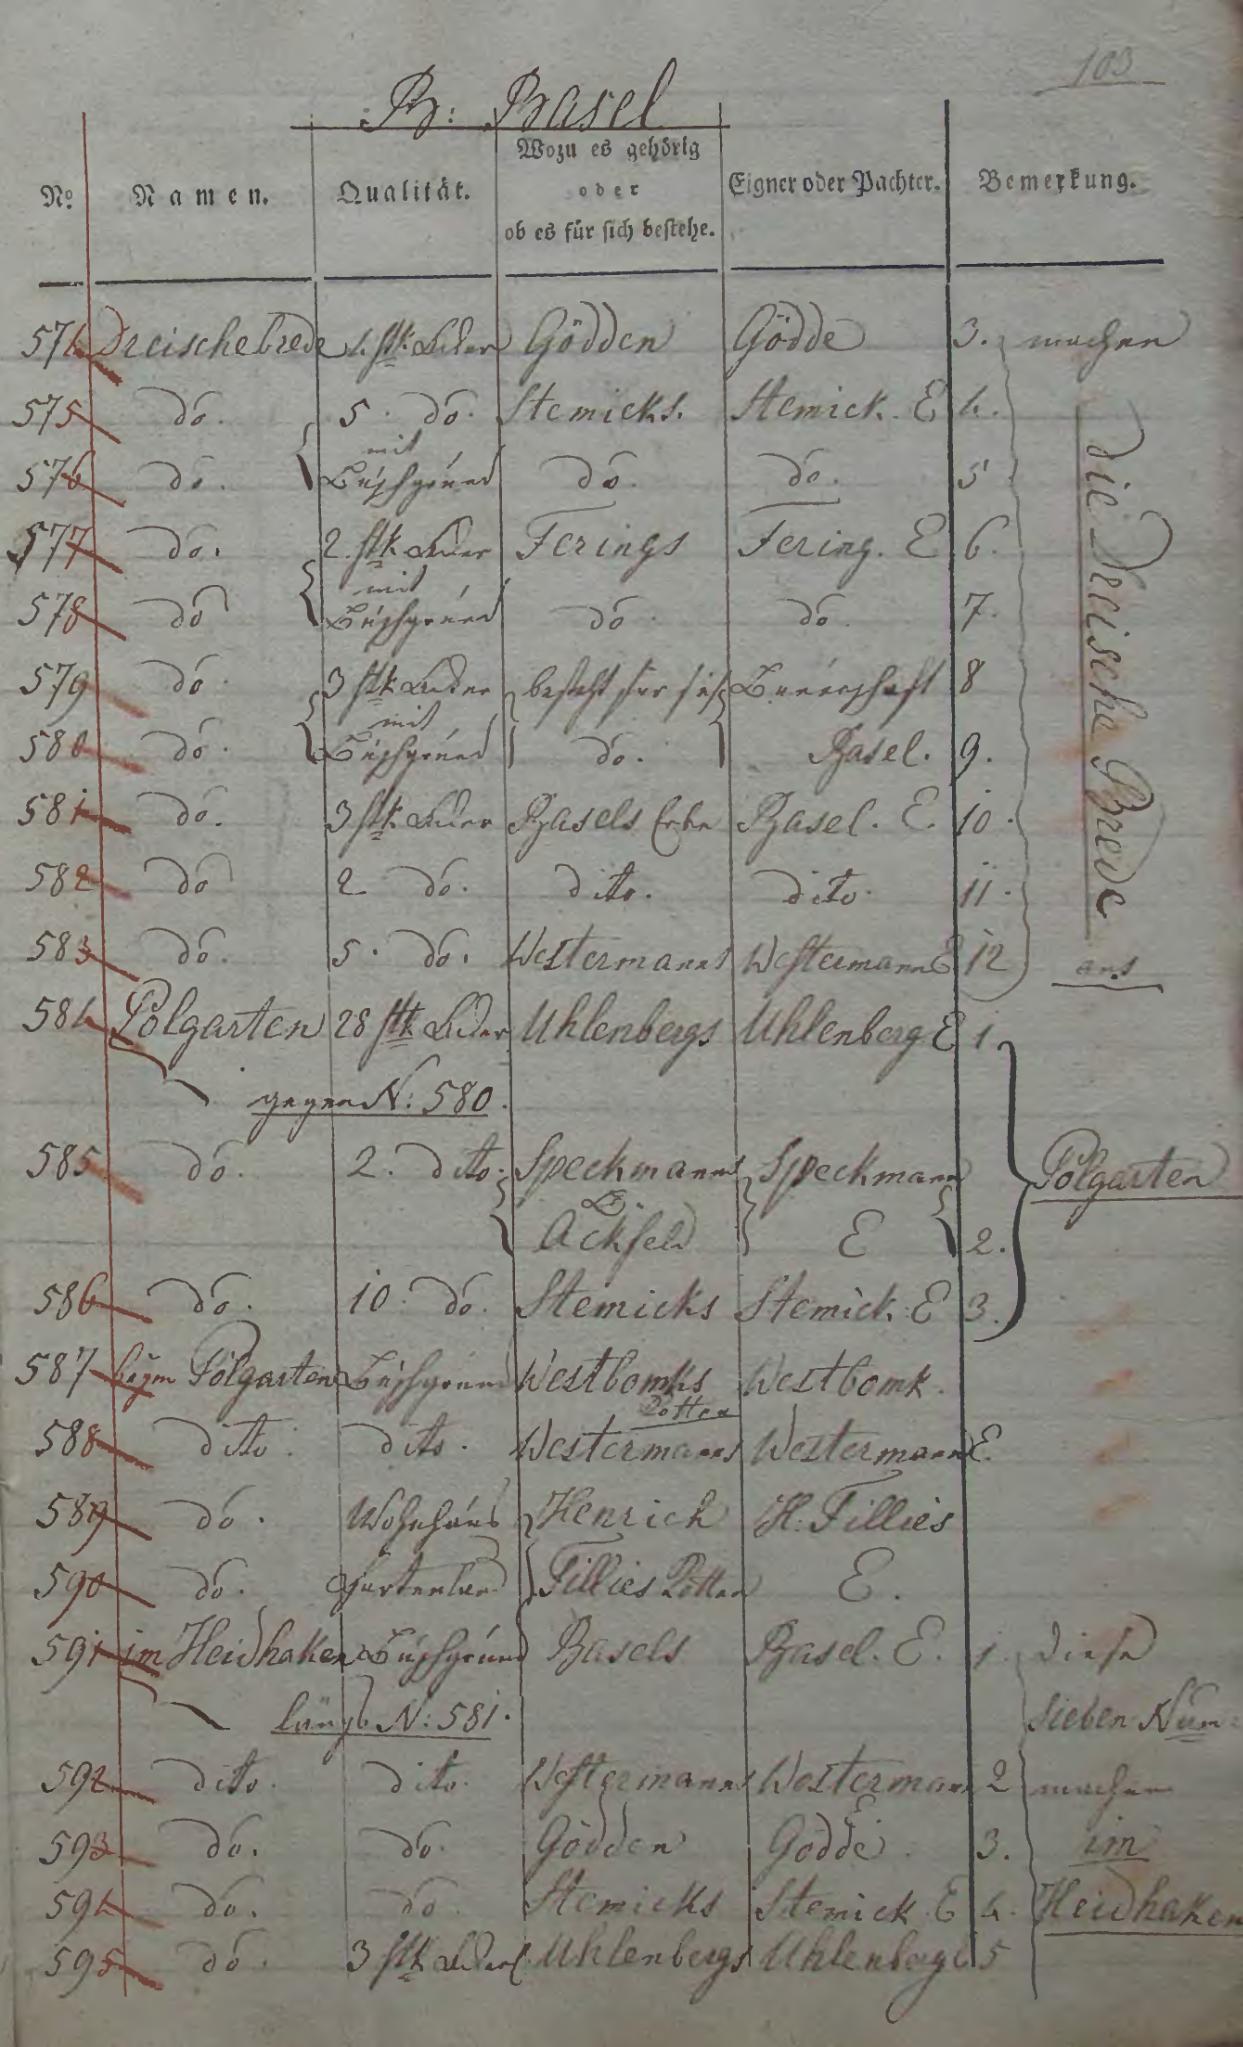 103
B: Basel
No. Namen. Qualität. Wozu es gehörig oder ob es für sich bestehe. Eigner oder Pachter. Bemerkung.
574 Dreischebrede 1. stk Lider Gödden Gödde 3. machen
575 do. 5. do. Stemicks. Stemick. E 4.
576 do. mit Buschgrund do. do. 5
577 do. 2. stk Lider Ferings Fering. E 6.
578 do mit Buschgrund do do. 7.
579 do. 3 stk Lider besteht für sich Bauerschaft 8
580 do. mit Buschgrund do. Basel. 9.
581 do. 3 stk. Lider Basels Erbe Basel. E. 10.
582 do 2 do. dito. dito. 11.
583 do. 5. do. Westermanns Westermann E 12
die Dreische Brede
aus
584 Polgarten 28 stk Lider Uhlenbergs Uhlenberg E 1.
gegen N: 580.
585 do. 2. dito. Speckmanns Speckmann
Ackfeld E 2.
Polgarten
586 do. 10. do. Stemicks Stemick. E 3.
587 beym Polgarten Buschgrund Westbomks Westbomk.
Kotten
588 dito dito. Westermanns Westermann E.
589 do. Wohnhaus Henrich H: Fillies
590 do. Gartenland Fillies Kotten E.
591 im Heidhaken Buschgrund Basels Basel. E. 1. Diese
längs N: 581. sieben Num=
592 dito. dito. Westermanns Westermann 2 machen
E
593 do. do. Gödden Gödde. 3. im
594 do. do Stemicks Stemick. E 4. Heidhaken
595 do. 3 stk Lider Uhlenbergs Uhlenberg E 5